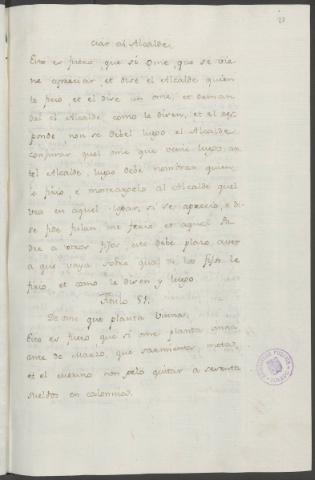 ciar al Alcalde.
Esto es fuero que si ome, que se vie
ne apreciar, et dise el Alcalde quien
le firio et el dise un ome, et deman
dal el Alcalde como le disen, et el res
ponde, non se debel luego el Alcalde
conjurar quel ome que venie luego an
tel Alcalde, luego debe nombrar quien
le firio, e mostrargelo al Alcalde quel
vea en aquel logar, si se aprecio, e di
se fulan me firio et aquel Pa
dre a otros fijos, este debe plazo, aver
a que vaya sobre qual de los fijos le
firio, et como le disen y luego.
Titulo 51.
De ome que planta viñas.
Esto es fuero que si ome planta viña
ante de Marzo, que sarmientos, metas,
et el merino non gelo quitar a sesenta
sueldos en calonnias.